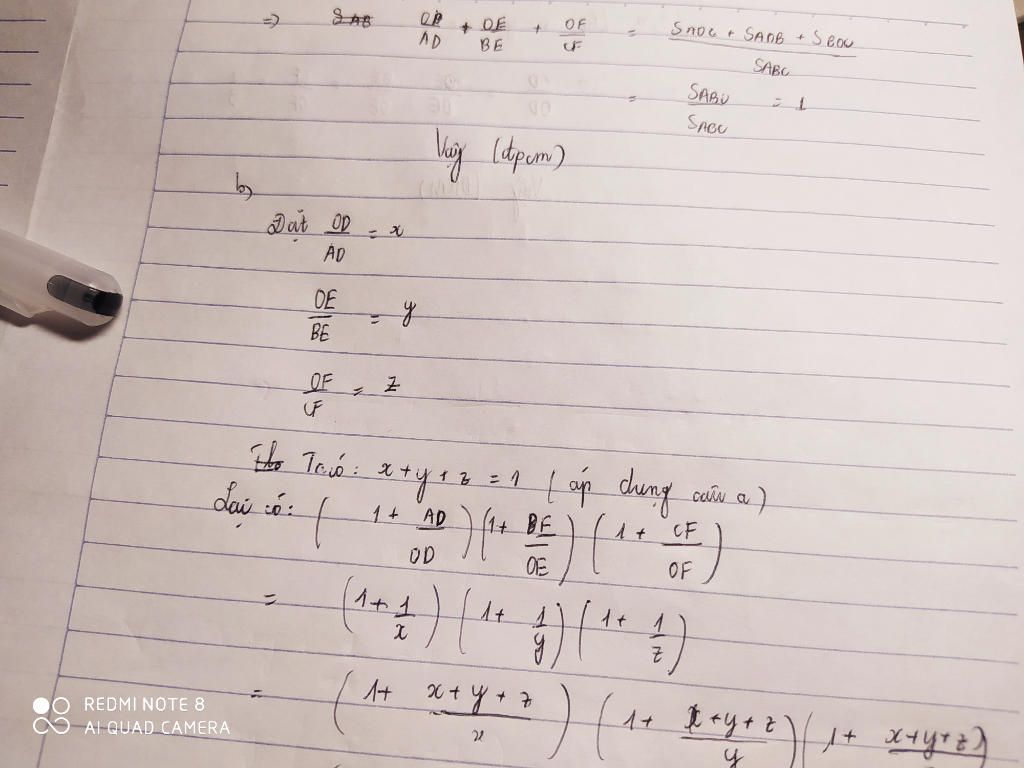 => OD/AD + OE/BE + OF/CF = SAOC + SAOB + SBOC / SABC
= SABC / SABC = 1
Vậy (đpcm)
b)
Đặt OD/AD = x
OE/BE = y
OF/CF = z
Ta có: x + y + z = 1 ( áp dụng câu a)
Lại có: ( 1 + AD/OD ) ( 1 + BE/OE ) ( 1 + CF/OF )
= ( 1 + 1/x ) ( 1 + 1/y ) ( 1 + 1/z )
= ( 1 + x + y + z / x ) ( 1 + x + y + z / y ) ( 1 + x + y + z )
REDMI NOTE 8
AI QUAD CAMERA